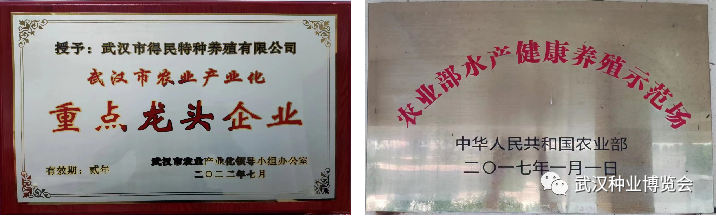 授予：武汉市得民特种养殖有限公司
武汉市农业产业化
重点龙头企业
有效期：贰年
武汉市农业产业化领导小组办公室
二〇二二年七月
农业部水产健康养殖示范场
中华人民共和国农业部
二〇一七年一月一日
武汉种业博览会